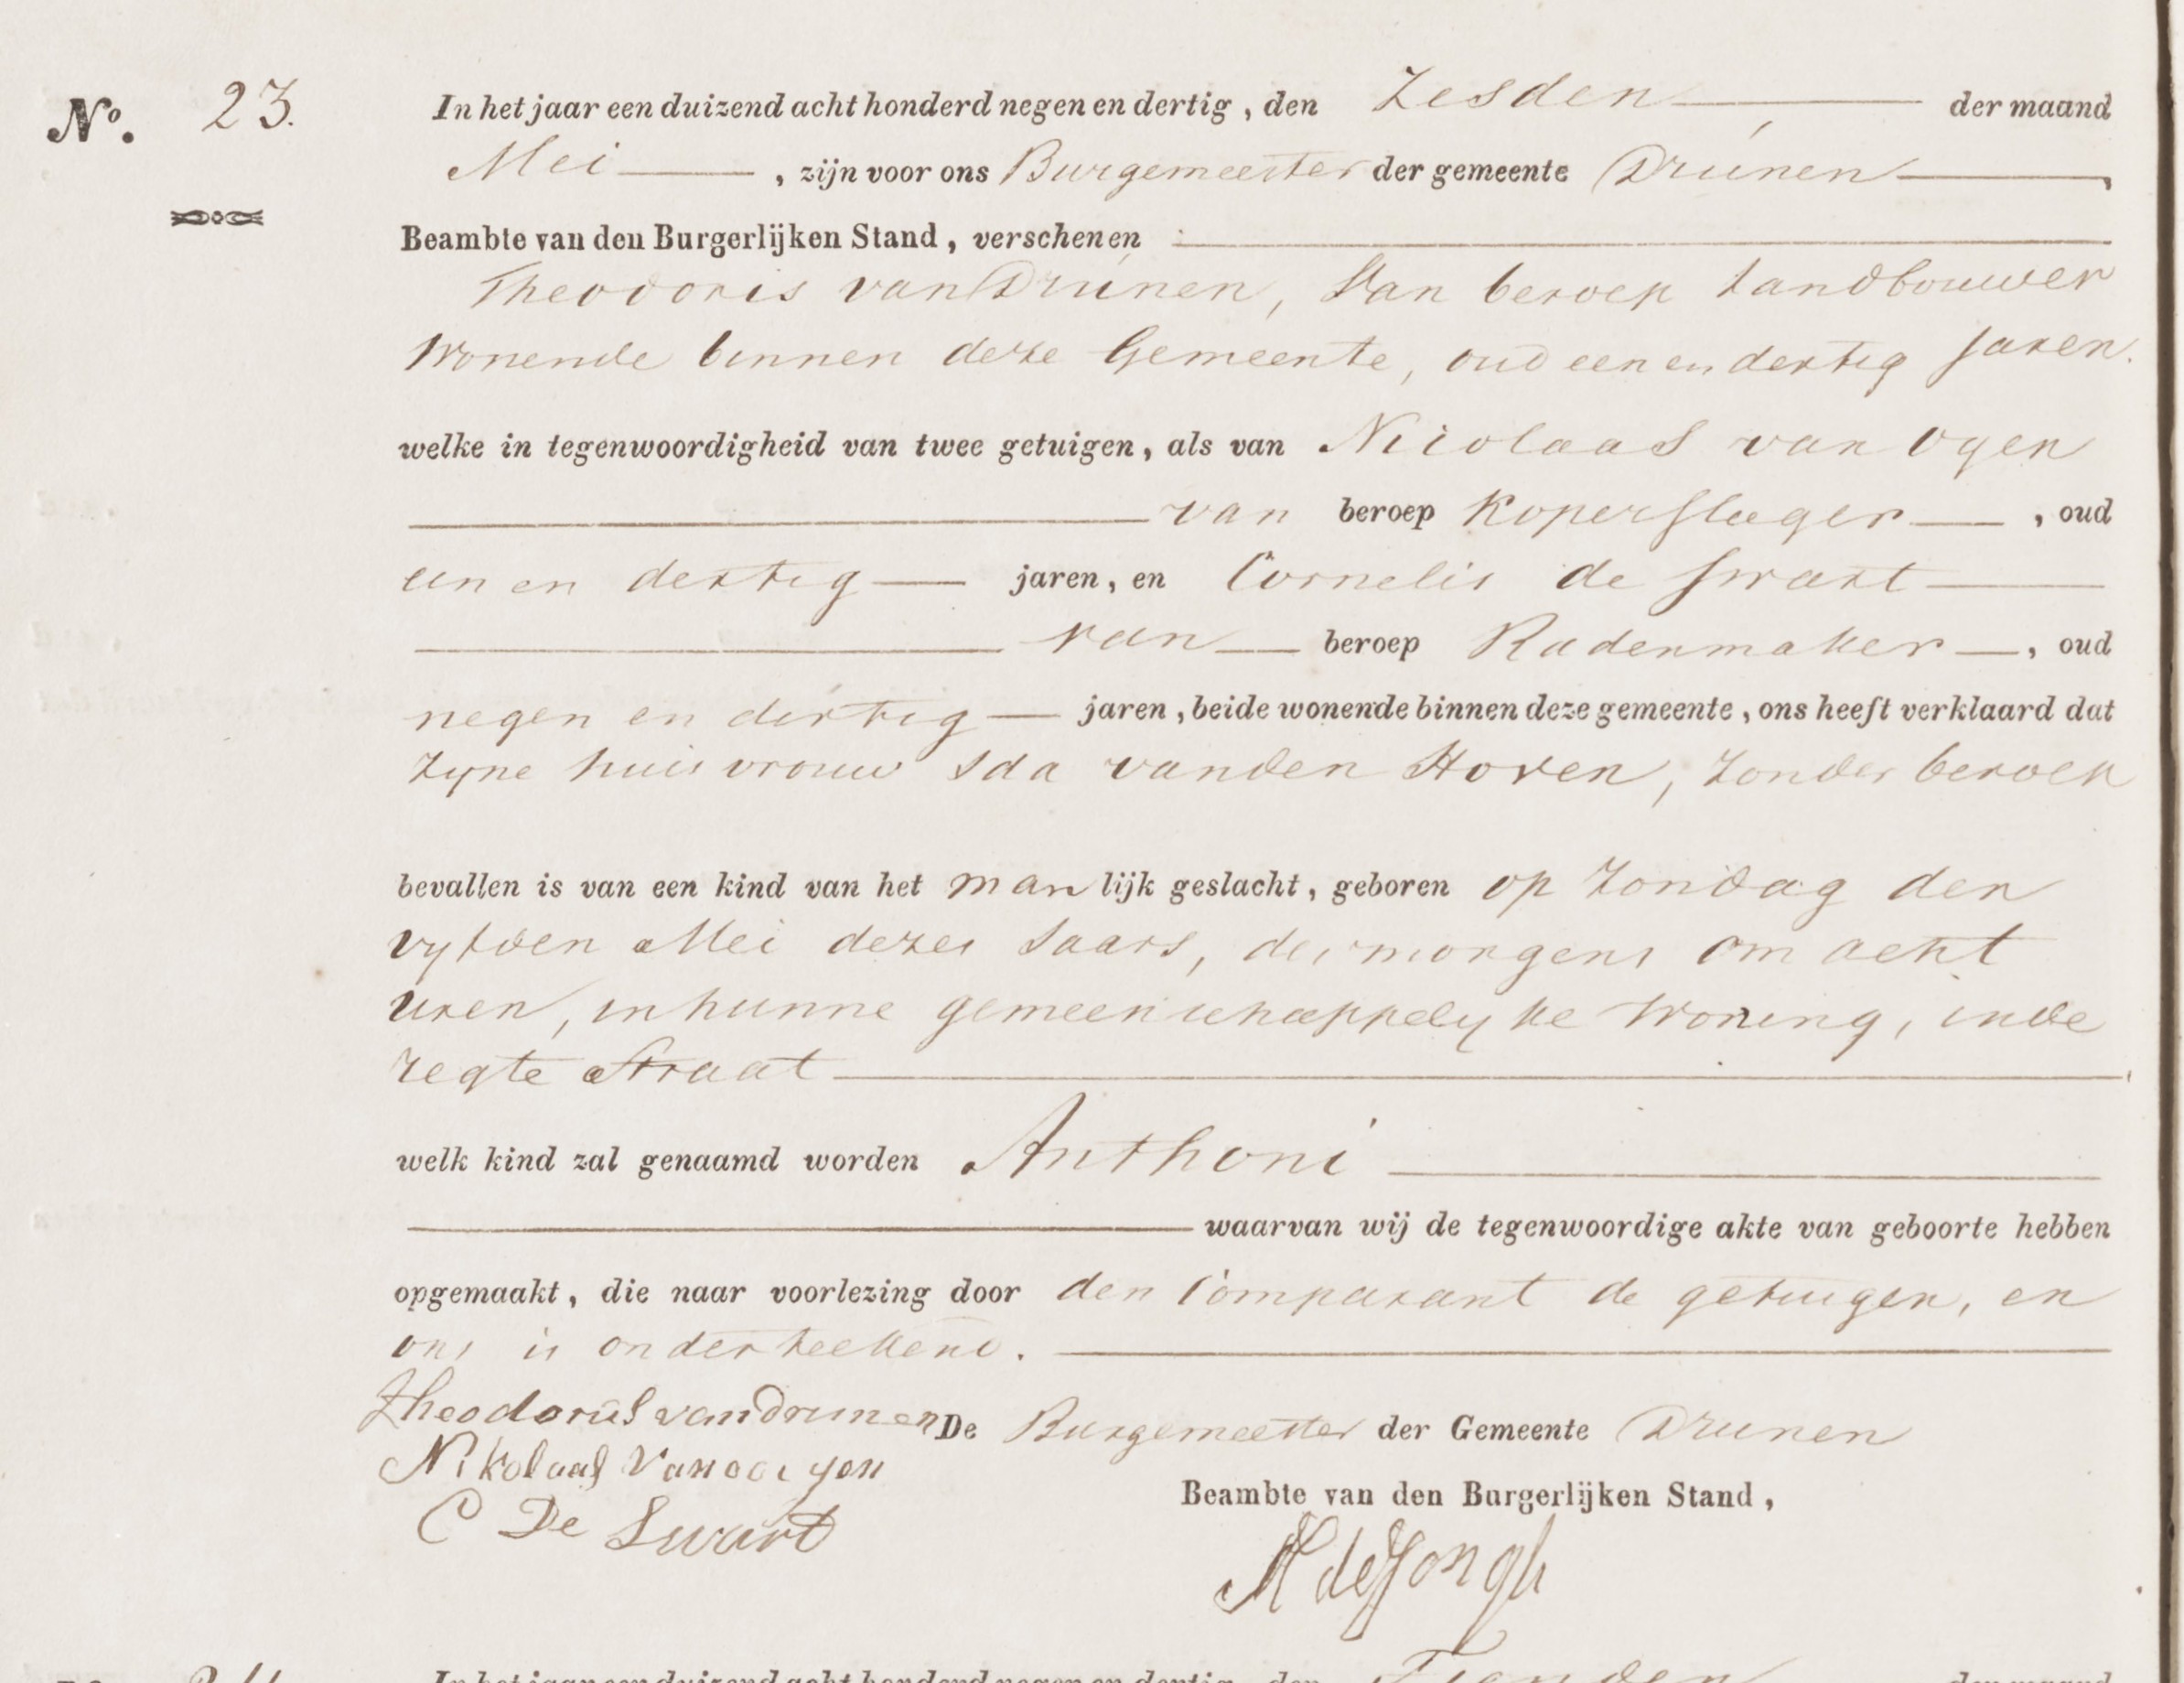 No. 23.
In het jaar een duizend acht honderd negen en dertig, den Zesden der maand
Mei, zijn voor ons Burgemeester der gemeente Drúnen,
Beambte van den Burgerlijken Stand, verschenen
Theodoris van Drúnen, Van beroep Landbouwer
Wonende binnen deze Gemeente, oud een en dertig Jaren.
welke in tegenwoordigheid van twee getuigen, als van Nicolaas van Oyen
van beroep Koperslager, oud
een en dertig jaren, en Cornelis de Swart
van beroep Radenmaker, oud
negen en dertig jaren, beide wonende binnen deze gemeente, ons heeft verklaard dat
Zyne huisvrouw Ida vanden Hoven, Zonder beroep
bevallen is van een kind van het manlijk geslacht, geboren op Zondag den
vyfden Mei dezes Jaars, des morgens om acht
uren, in hunne gemeenschappelyke Woning, inde
regte Straat
welk kind zal genaamd worden Anthoni
waarvan wij de tegenwoordige akte van geboorte hebben
opgemaakt, die naar voorlezing door den Comparant de getuigen, en
ons is onderteekend.
Theodorus van drunen De Burgemeester der Gemeente Drunen
Nikolaas Van ooijen
Beambte van den Burgerlijken Stand,
C De Swart
de Jongh
In het jaar een duizend acht honderd negen en dertig, den der maand